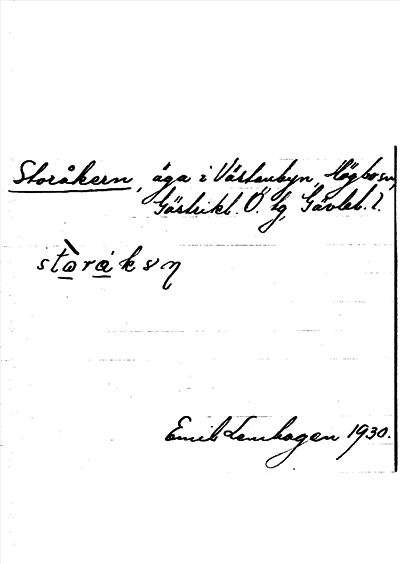 Storåkern, äga i Västerbyn, Högbo sn,
Gästrikl. Ö. tg, Gävleb. l.
storáksn
Emil Lemhagen 1930.